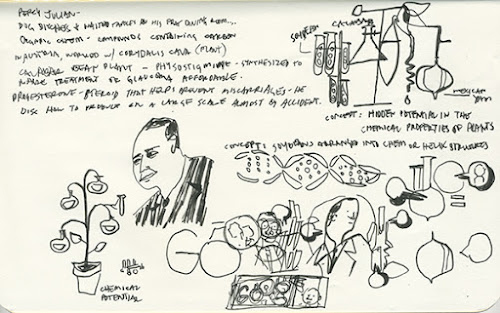 PERCY JULIAN -
ORGANIC CHEM - COMPOUNDS CONTAINING CARBON
IN AUSTRIA, WORKED W/ CORYDALIS CAVA (PLANT)
CALABAR BEAN PLANT - PHYSOSTIGMINE - SYNTHESIZED TO
MAKE TREATMENT OF GLAUCOMA AFFORDABLE.
PROGESTERONE - STEROID THAT HELPS PREVENT MISCARRIAGES - HE
DISC HOW TO PRODUCE ON A LARGE SCALE ALMOST BY ACCIDENT.
SOYBEAN
CALABAR
MEXICAN
YAM
CONCEPT: HIDDEN POTENTIAL IN THE
CHEMICAL PROPERTIES OF PLANTS
CONCEPT: SOYBEANS ARRANGED INTO CHEM OR HELIX STRUCTURES
CHEMICAL
POTENTIAL
GO